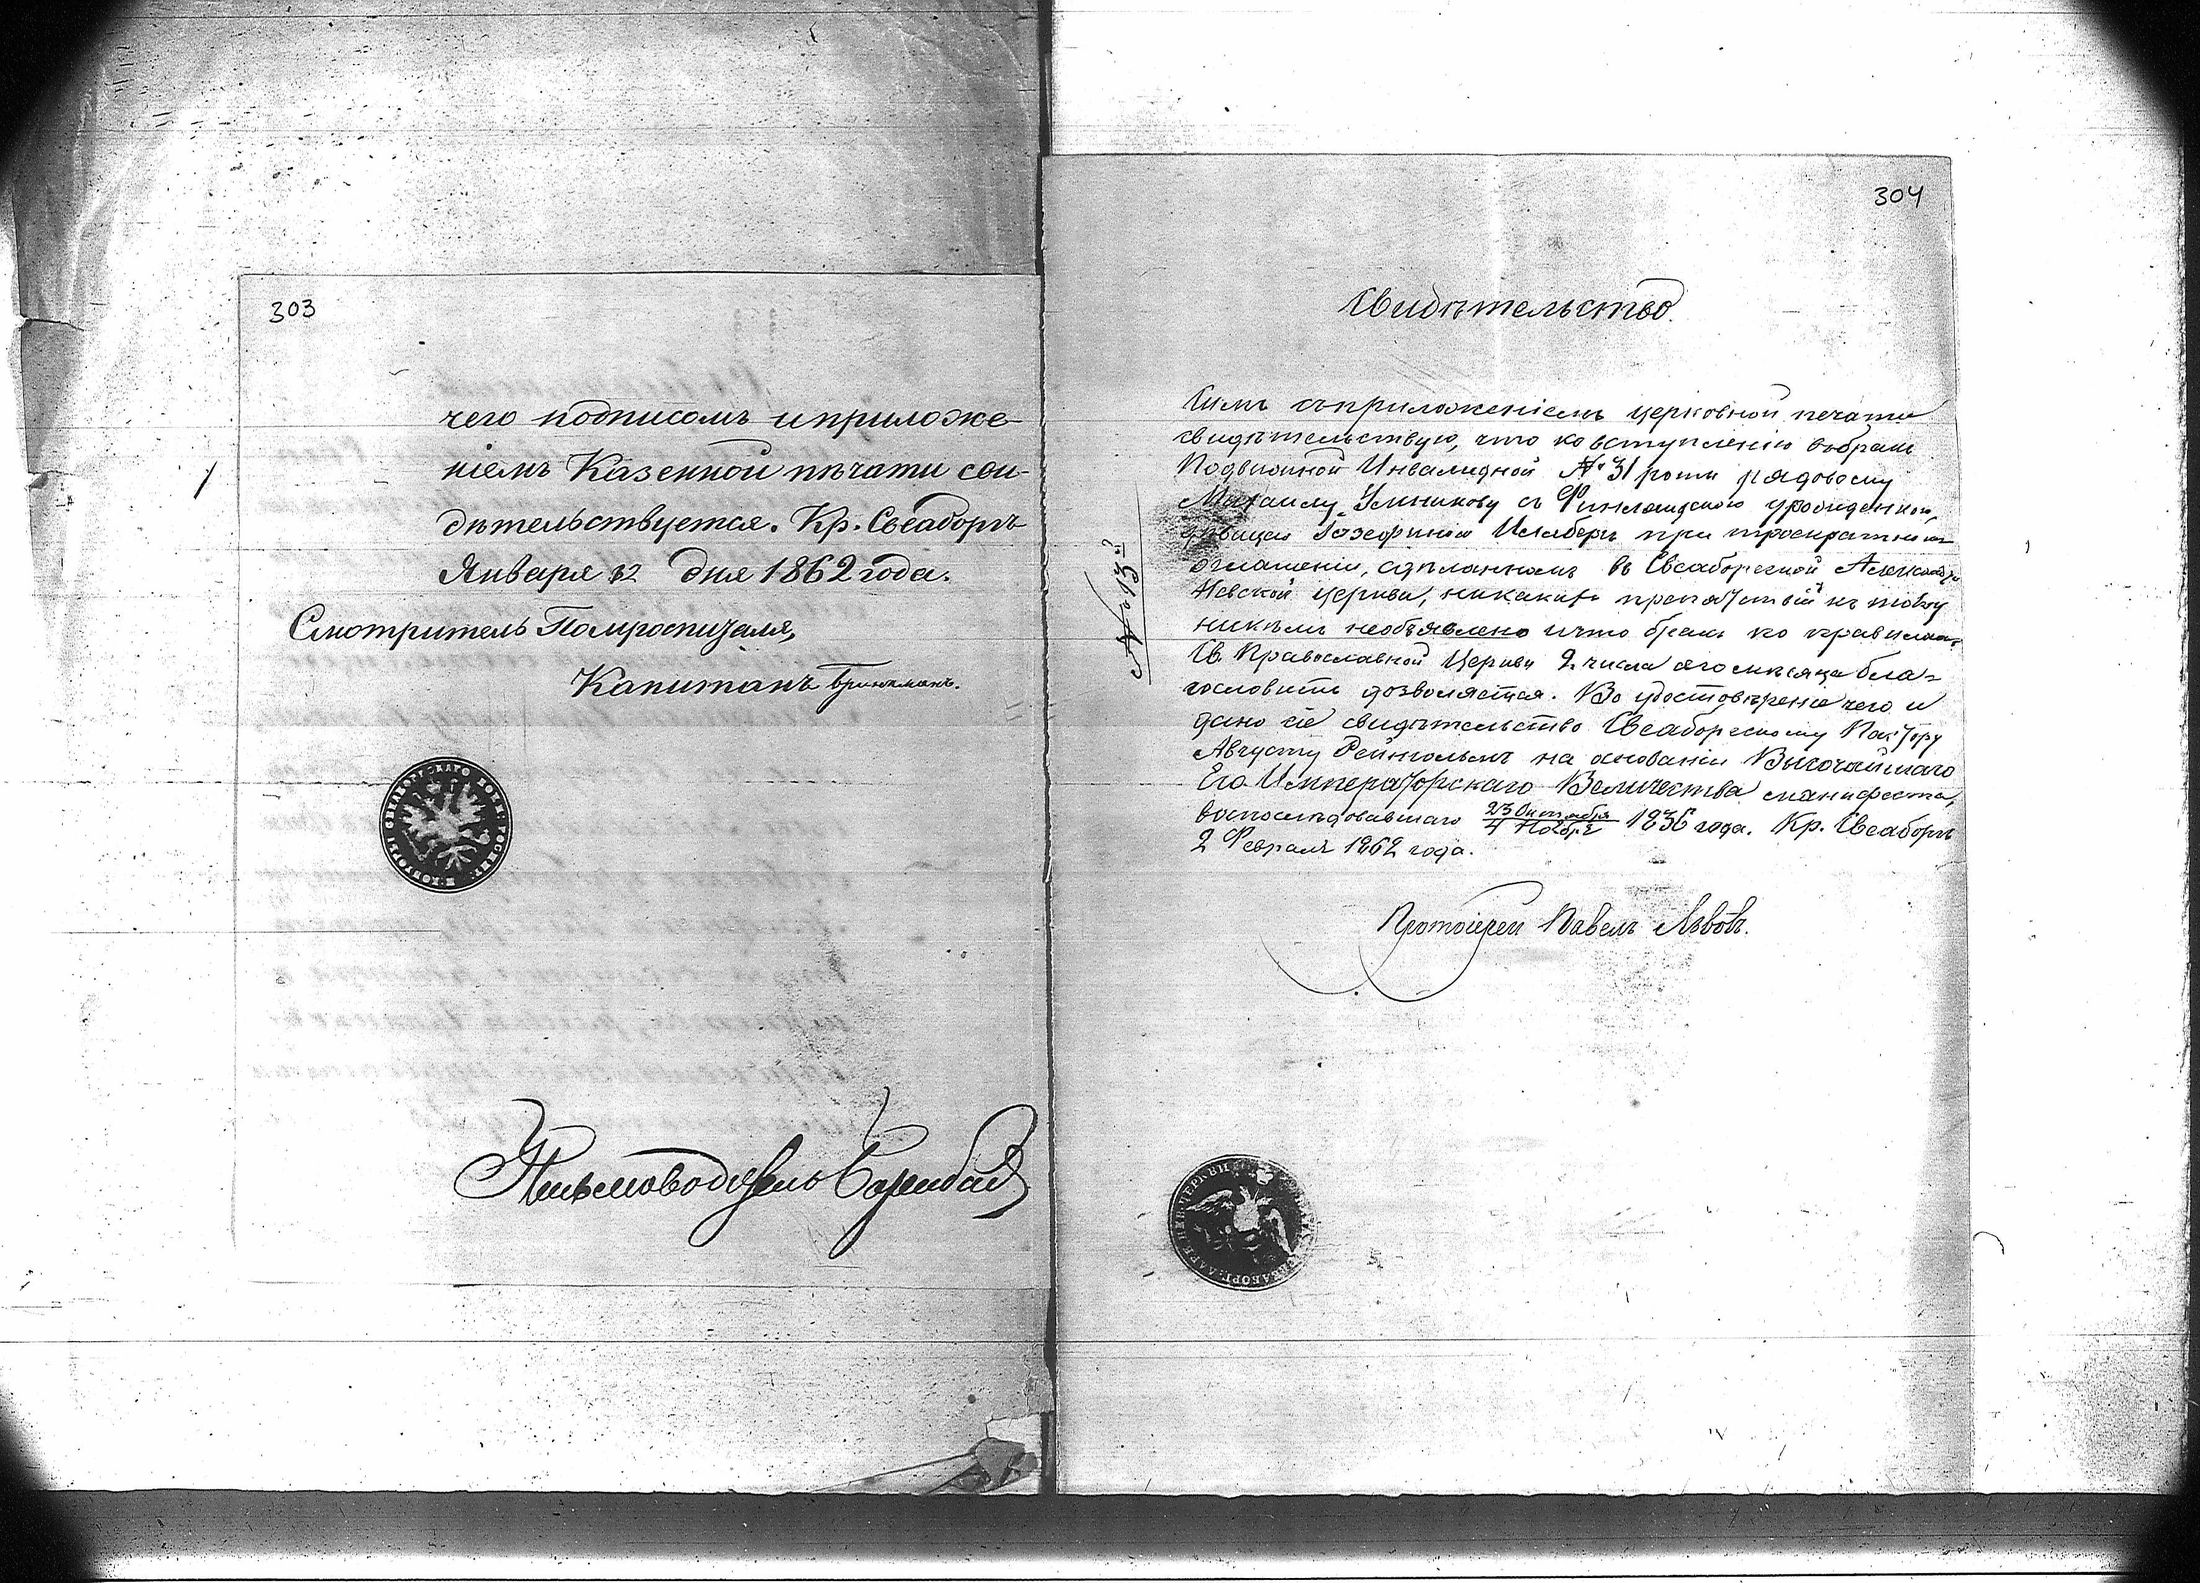 303
чего подписомъ и приложе-
ніемъ Казенной пѣчати сви-
дѣтельствуется. Кр. Свеаборгъ
Января 12 дня 1862 года.
Смотритель Полугоспиталя,
Капитанъ Бринкманъ.
Письмоводитель
304
Свидѣтельство.
Симъ съ приложеніемъ церковной печати
свидѣтельствую, что ко вступленію въ бракъ
Подвижной Инвалидной № 31 роты рядовому
Михаилу с Финляндскою уроженкою,
дѣвицею при троекратномъ
оглашеніи, сдѣланномъ въ Свеаборгской Александро
Невской церкви, никакихъ препятствій къ тому
никѣмъ необъявлено и что бракъ по правиламъ
Св. Православной Церкви 2 числа сего мѣсяца бла=
гословить дозволяется. Во удостовѣреніе чего и
дано сіе свидѣтельство Свеаборгскому Пастору
Августу на основаніи Высочайшаго
Его Императорскаго Величества манифеста,
воспослѣдовавшаго 23 Октября / 4 Ноября 1836 года. Кр. Свеаборгъ
2 Февраля 1862 года.
№ 13
Протоіерей Павелъ Львовъ.